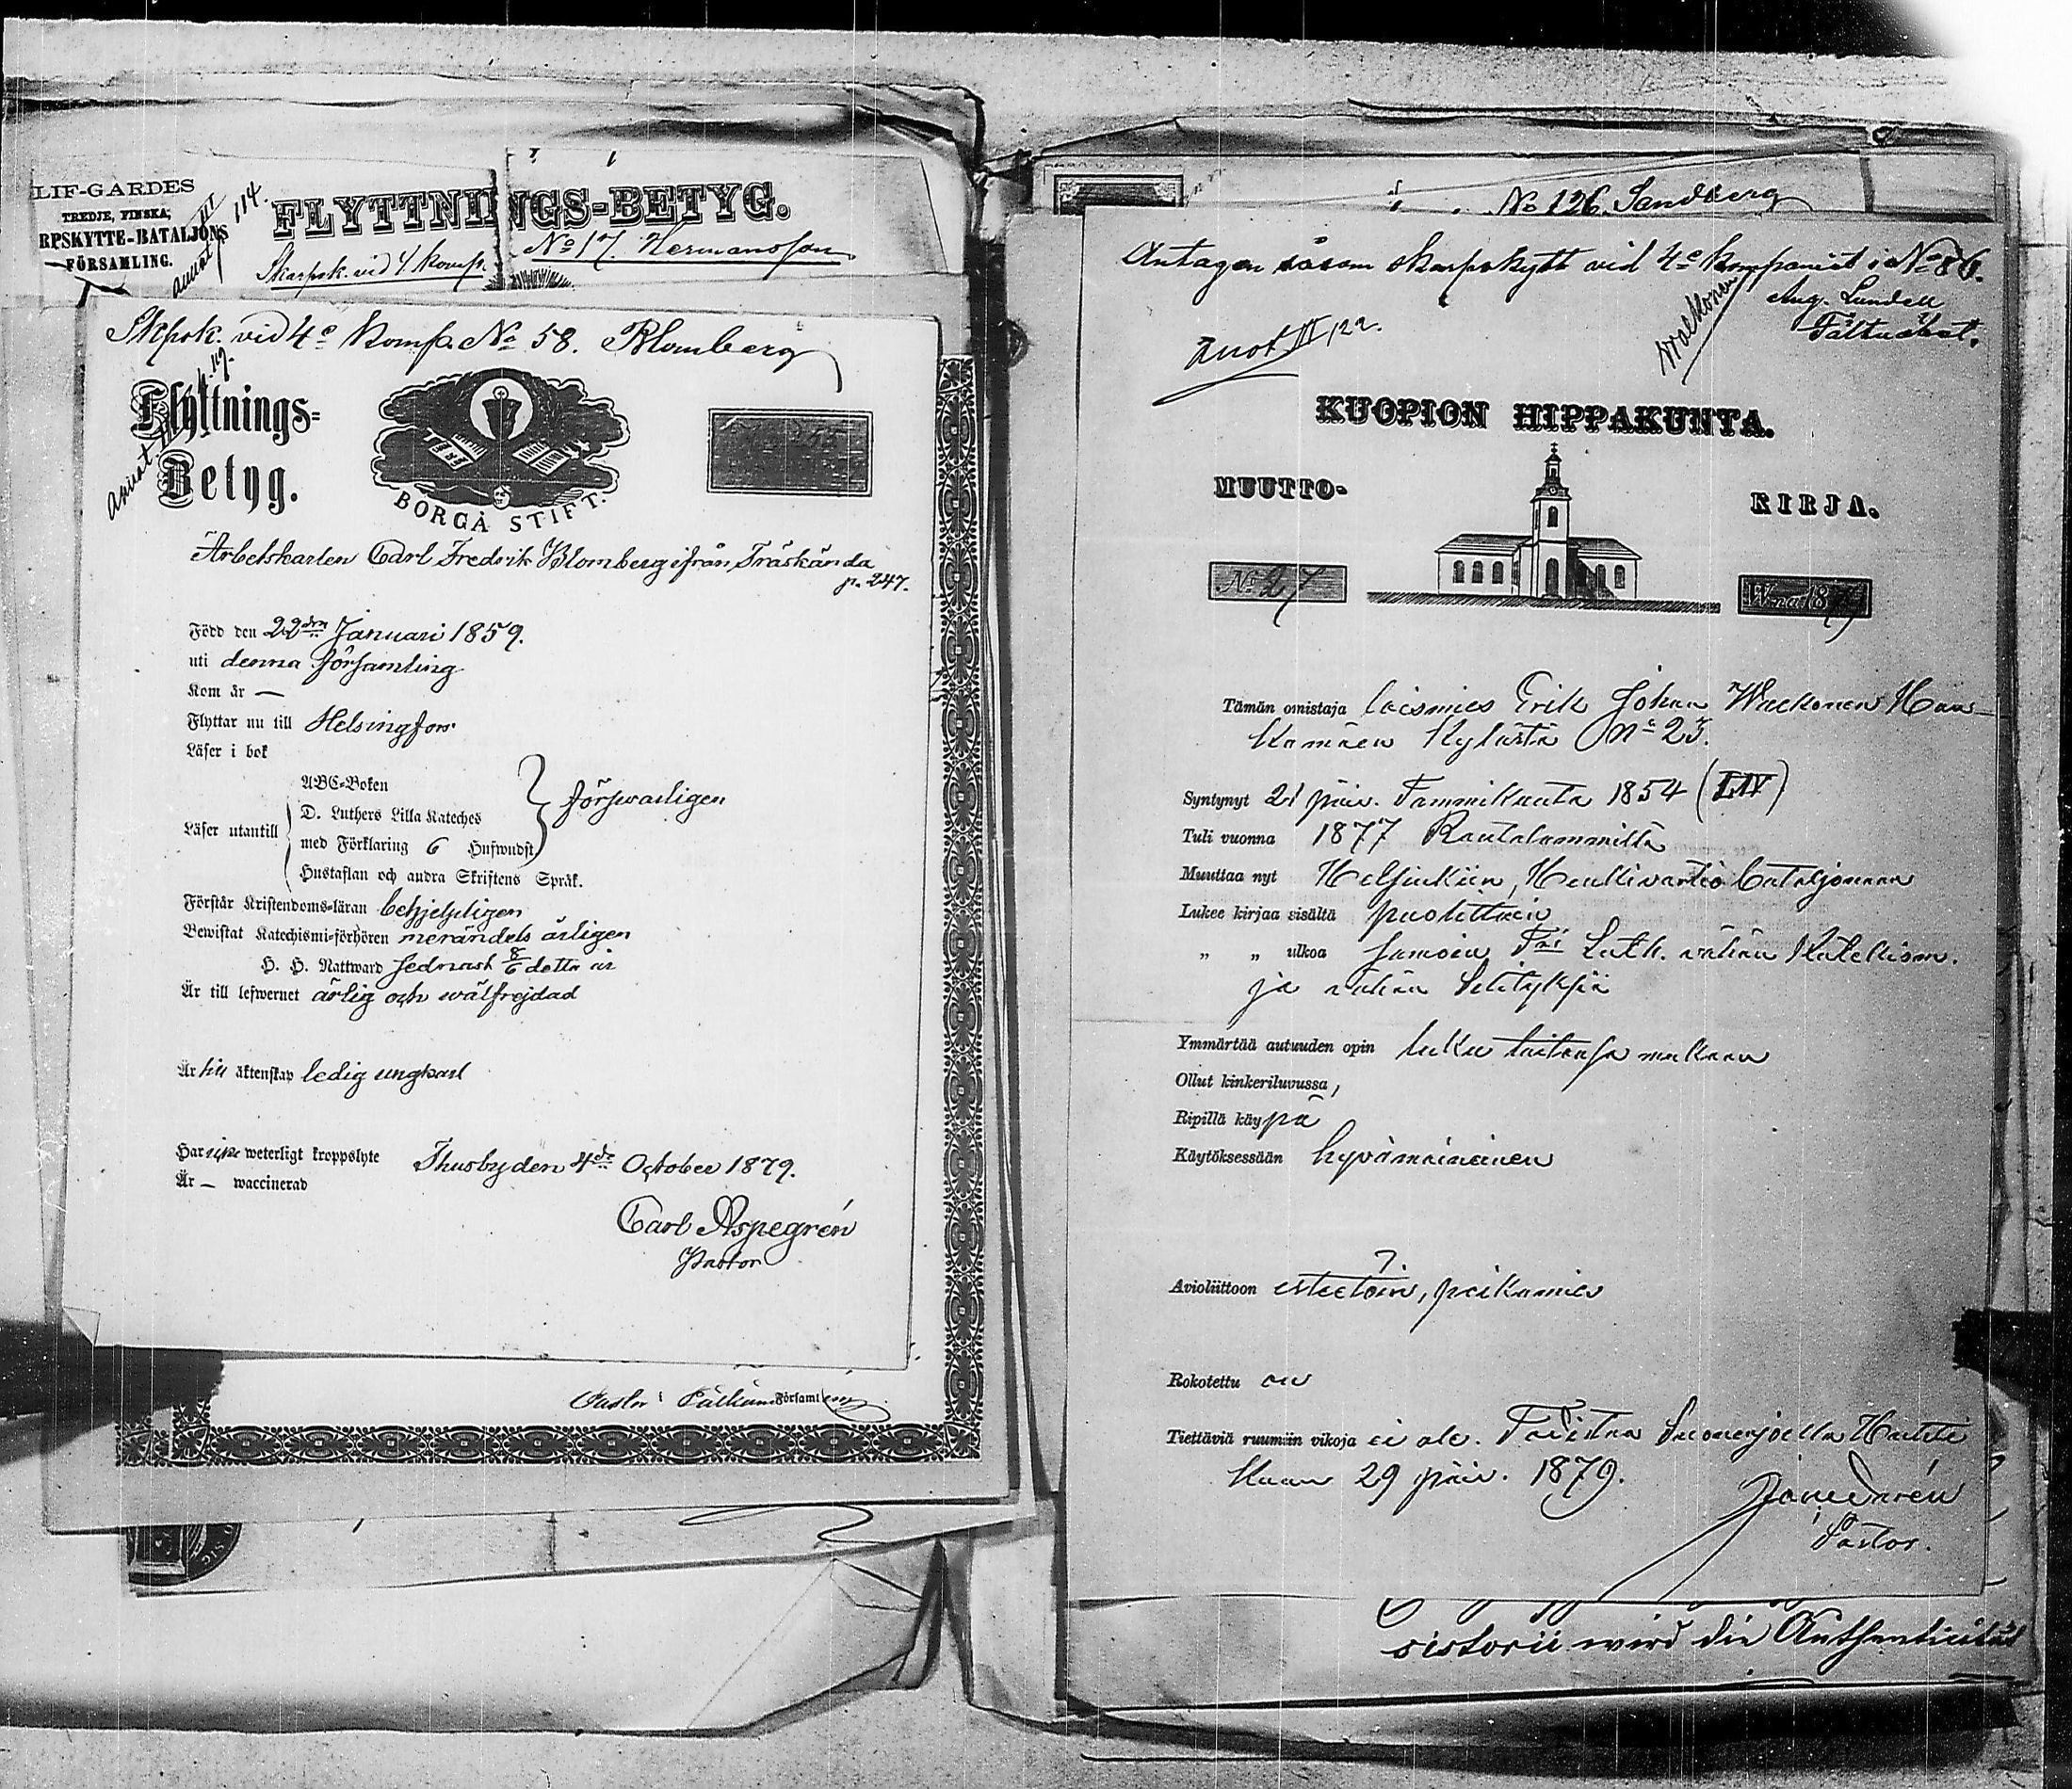 LIF-GARDES
TREDJE, FINSKA,
RPSKYTTE-BATALJONS
FÖRSAMLING.
114.
FLYTTNINGS-BETYG.
Skarpsk. vid 4 Komp.
No 17. Hermansson
Skpsk. vid 4e Komp. No 58. Blomberg
Flyttnings-
Betyg.
BORGÅ STIFT.
Arbetskarlen Carl Fredrik Blomberg ifrån Träskända
p. 247.
Född den 22dra Januari 1859.
uti denna församling
Kom år —
Flyttar nu till Helsingfors
Läser i bok
ABC-Boken
D. Luthers Lilla Kateches
Läser utantill
med Förklaring 6 Hufwudst
försvarligen
Hustaflan och andra Skriftens Språk.
Förstår Kristendoms-läran behjelpligen
Bewistat Katechismi-förhören merändels årligen
H. H. Nattward sednast 8/6 detta år
Är till lefwernet ärlig och wälfrejdad
Är till äktenskap ledig ungkarl
Har icke weterligt kroppslyte
Är — waccinerad
Thusby den 4de October 1879.
Carl Aspegrén
Pastor
Pastor i Församl
No 126. Sandberg
Antagen såsom skarpskytt vid 4e Kompaniet i No 86.
Aug. Lundell
KUOPION HIPPAKUNTA.
MUUTTO-
KIRJA.
No 27
W:na 1879
Tämän omistaja loismies Erik Johan Walkonen Hau-
kamäen Kylästä No 23.
Syntynyt 21 päiv. Tammikuuta 1854 (LIV)
Tuli vuonna 1877 Rautalammilta
Muuttaa nyt Helsinkiin, Henkivartio bataljonaan
Lukee kirjaa sisältä puolittain
„ „ ulkoa samoin Tri Luth. vähän Katekism.
ja vähän Selityksiä
Ymmärtää autuuden opin luku taitonsa mukaan
Ollut kinkeriluvussa,
Ripillä käypä
Käytöksessään hyvämaineinen
Avioliittoon esteetöin, poikamies
Rokotettu on
Tiettäviä ruumiin vikoja ei ole. Todistaa Suonenjoella Huhti
kuun 29 päiv. 1879.
Pastor.
sistorii wird die Authenticität